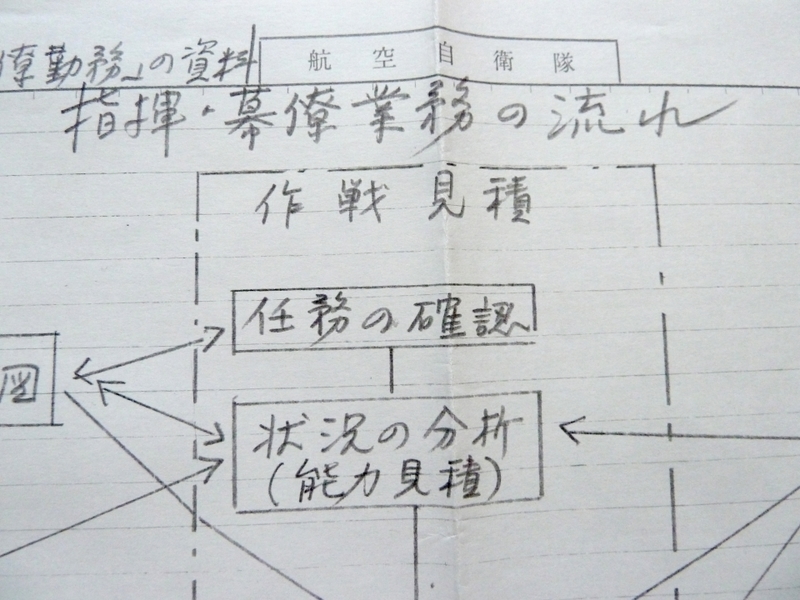 僚勤務」の資料
航空自衛隊
指揮・幕僚業務の流れ
作戦見積
任務の確認
図
状況の分析
(能力見積)